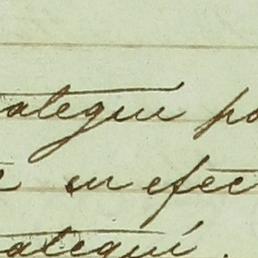 ategui po
en efec
ategui.